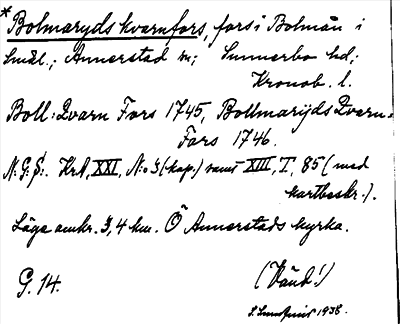 * Bolmaryds kvarnfors, fors i Bolmån i
Smål.; Annerstad sn; Sunnerbo hd;
Kronob. l.
Boll: Qvarn Fors 1745, Bollmaryds Qvarn-
Fors 1746.
Kr.A, XXI, N:o 3 (kop.) samt XIII, I, 85 (med
kartbeskr.).
Läge omkr. 3,4 km. Ö Annerstads kyrka.
G. 14.
(Vänd!)
1938.